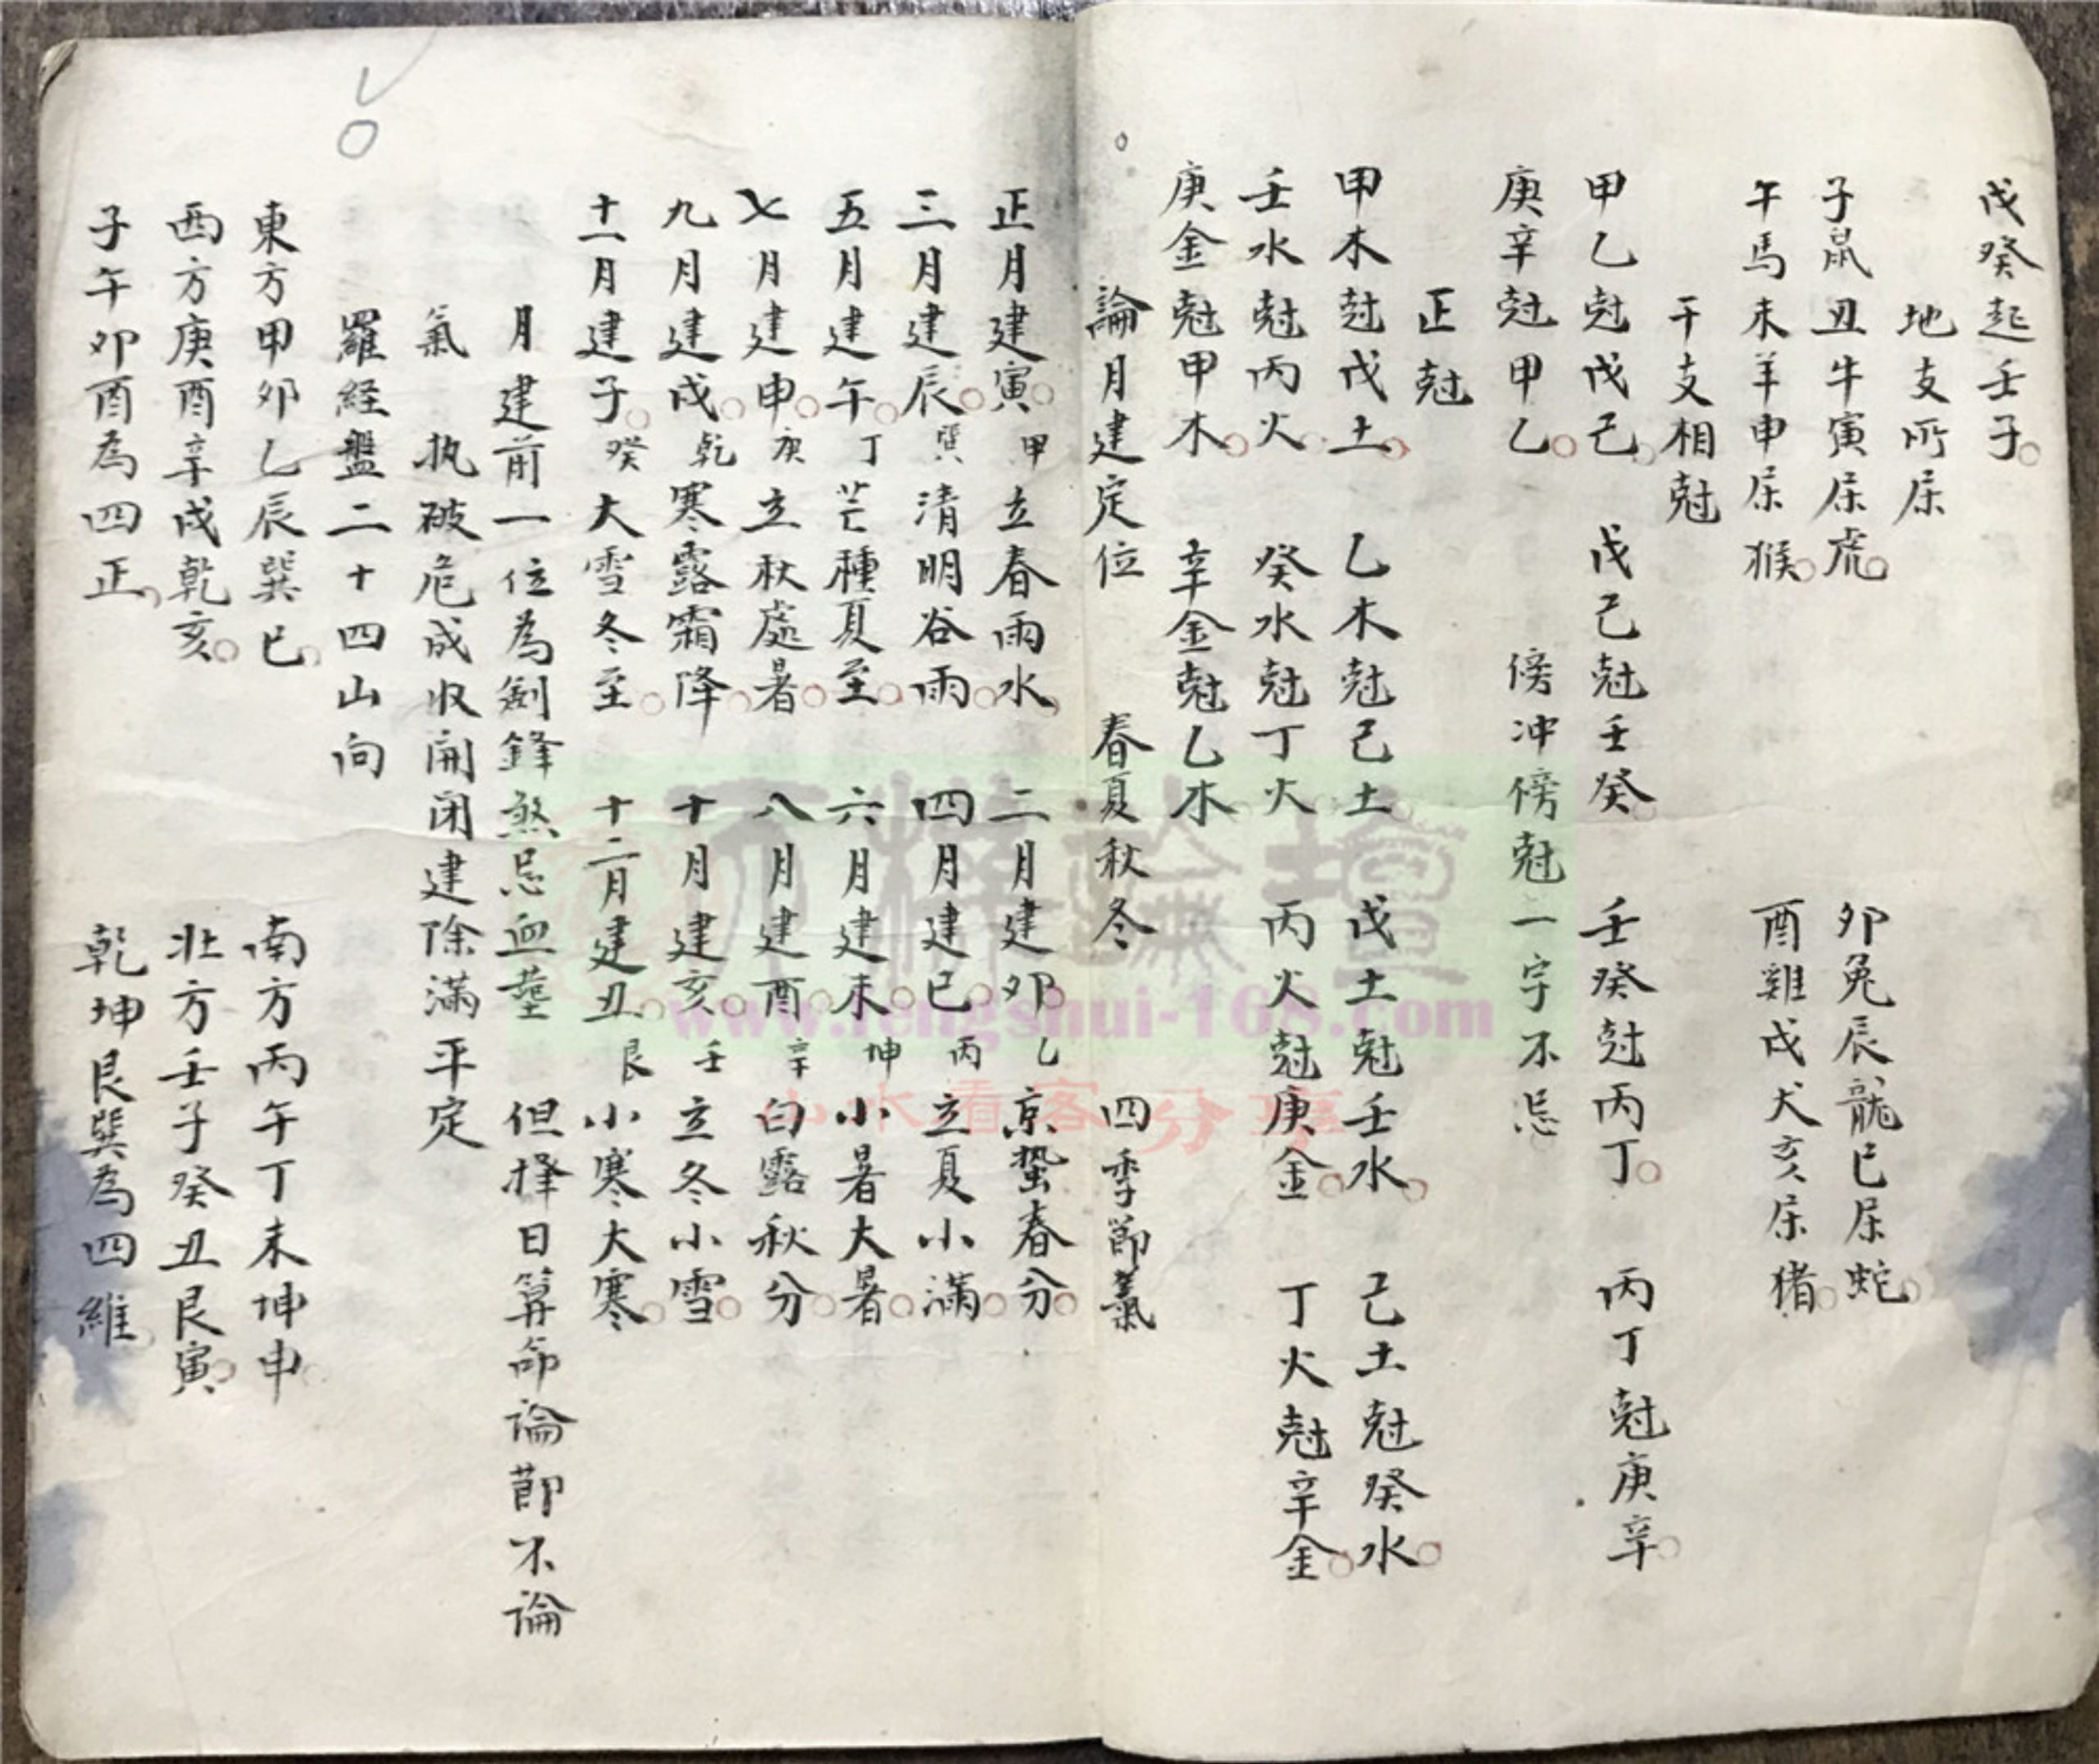 戊癸起壬子
地支所属
子鼠丑牛寅属虎 卯兔辰龍巳属蛇
午馬未羊申属猴 酉雞戌犬亥属猪
干支相尅
甲乙尅戊己 戊己尅壬癸 壬癸尅丙丁 丙丁尅庚辛
庚辛尅甲乙 傍冲傍尅一字不忌
正尅
甲木尅戊土 乙木尅己土 戊土尅壬水 己土尅癸水
壬水尅丙火 癸水尅丁火 丙火尅庚金 丁火尅辛金
庚金尅甲木 辛金尅乙木
論月建定位 春夏秋冬 四季節氣
正月建寅 甲 立春雨水 二月建卯 乙 京蟄春分
三月建辰 巽 清明谷雨 四月建巳 丙 立夏小滿
五月建午 丁 芒種夏至 六月建未 坤 小暑大暑
七月建申 庚 立秋處暑 八月建酉 辛 白露秋分
九月建戌 乾 寒露霜降 十月建亥 壬 立冬小雪
十一月建子 癸 大雪冬至 十二月建丑 艮 小寒大寒
月建前一位為劍鋒煞忌血塟 但擇日算命論節不論
氣 执破危成收開闭建除滿平定
羅経盤二十四山向
東方甲卯乙辰巽巳 南方丙午丁未坤申
西方庚酉辛戌乾亥 北方壬子癸丑艮寅
子午卯酉為四正 乾坤艮巽為四維
www.fengshui-168.com
山水看客分享